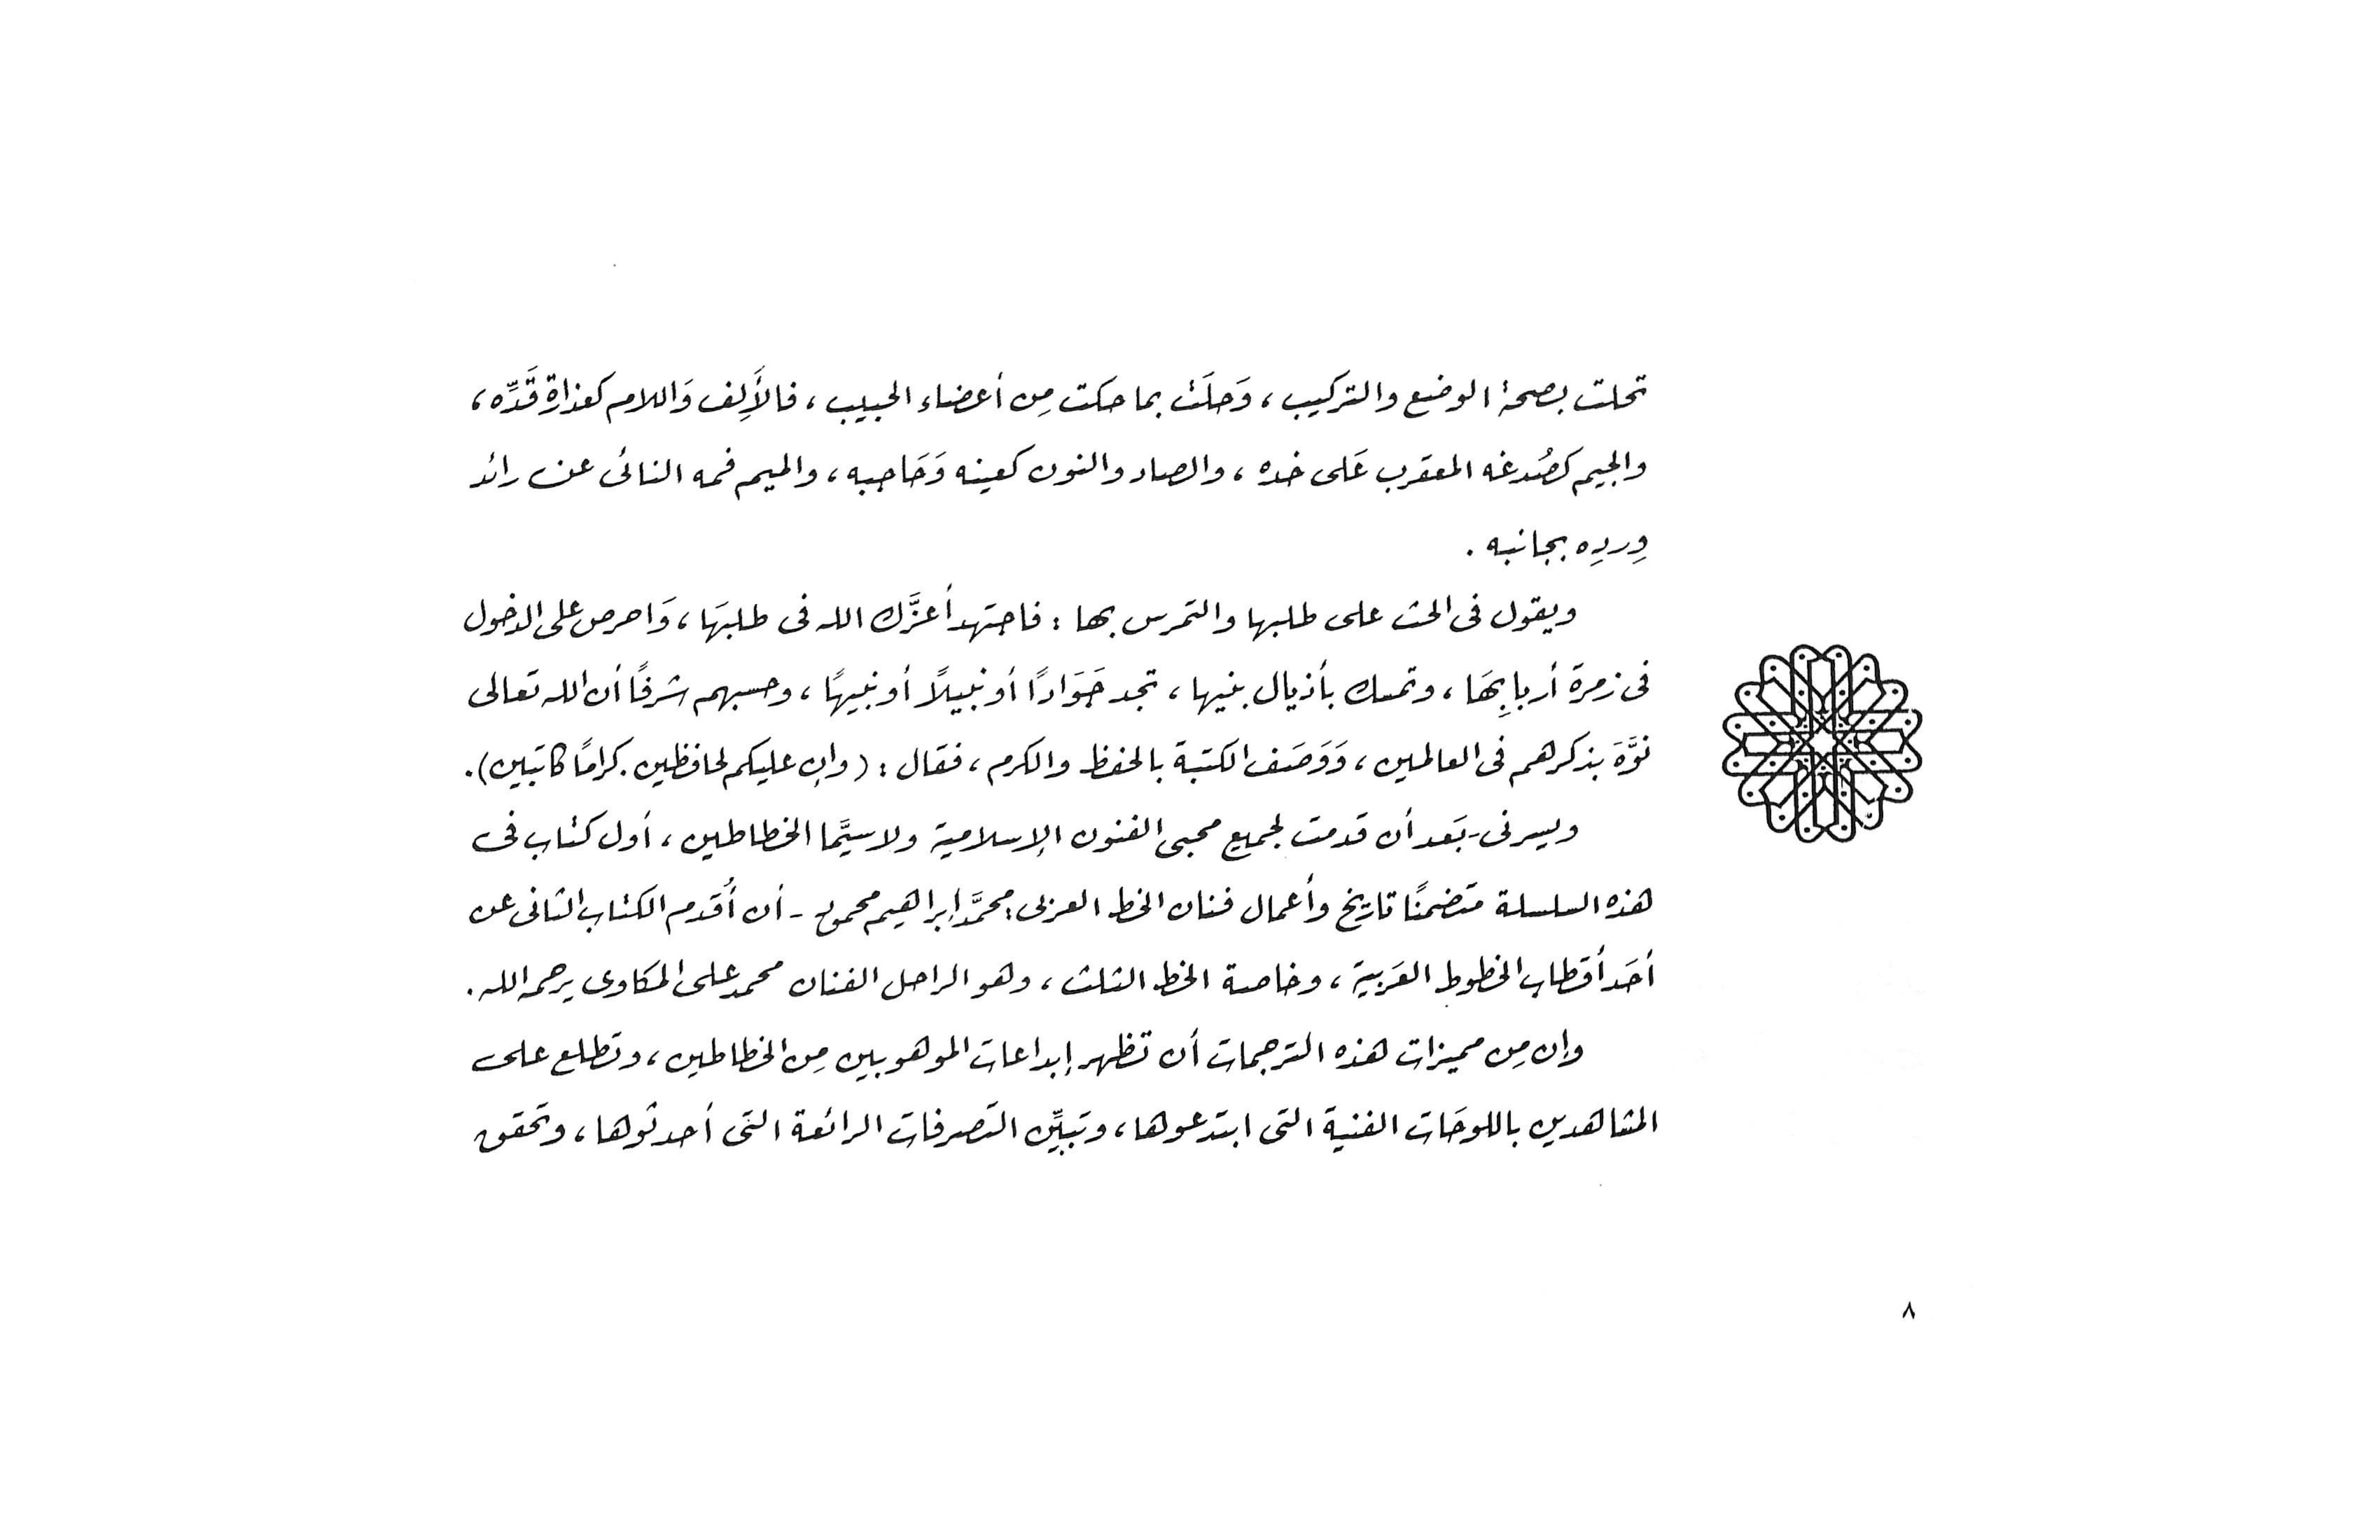 تحلت بصحة الوضع والتركيب ، وَحلَت بما حكت مِن أعضاء الحبيب ، فالأَلِف وَاللام كعذارة قَدِّه ،
والجيم كصُدغه المعقرب عَلى خده ، والصاد والنون كعينه وَحَاجبه ، والميم فمه النائى عن رائد
وِردِه بجانبه .
ويقول فى الحث على طلبها والتمرس بها : فاجتهد أعزَّك الله فى طلبَها ، وَاحرص على الدخول
فى زمرة أربابِهَا ، وتمسك بأذيال بنيها ، تجد جَوَادًا أو نبيلاً أو نبيهًا ، وحسبهم شرفًا أن الله تعالى
نوَّهَ بذكرهم فى العالمين ، وَوَصَف الكتبة بالحفظ والكرم ، فقال : ( وإن عليكم لحافظين . كرامًا كاتبين ) .
ويسرنى - بَعد أن قدمت لجميع محبى الفنون الإسلامية ولاسيَّما الخطاطين ، أول كتاب فى
هذه السلسلة متضمنًا تاريخ وأعمال فنان الخط العربى : محمَّد إبراهيم محمود - أن أُقدم الكتاب الثانى عن
أحَد أقطاب الخطوط العَربية ، وخاصة الخط الثلث ، وهو الراحل الفنان محمد على المكاوى يرحمه الله .
وإن مِن مميزات هذه الترجمات أن تظهر إبداعات الموهوبين مِن الخطاطين ، وتطلع على
المشاهدين باللوحَات الفنية التى ابتدعوها ، وتبيِّن التصرفات الرائعة التى أحدثوها ، وتحقق
٨